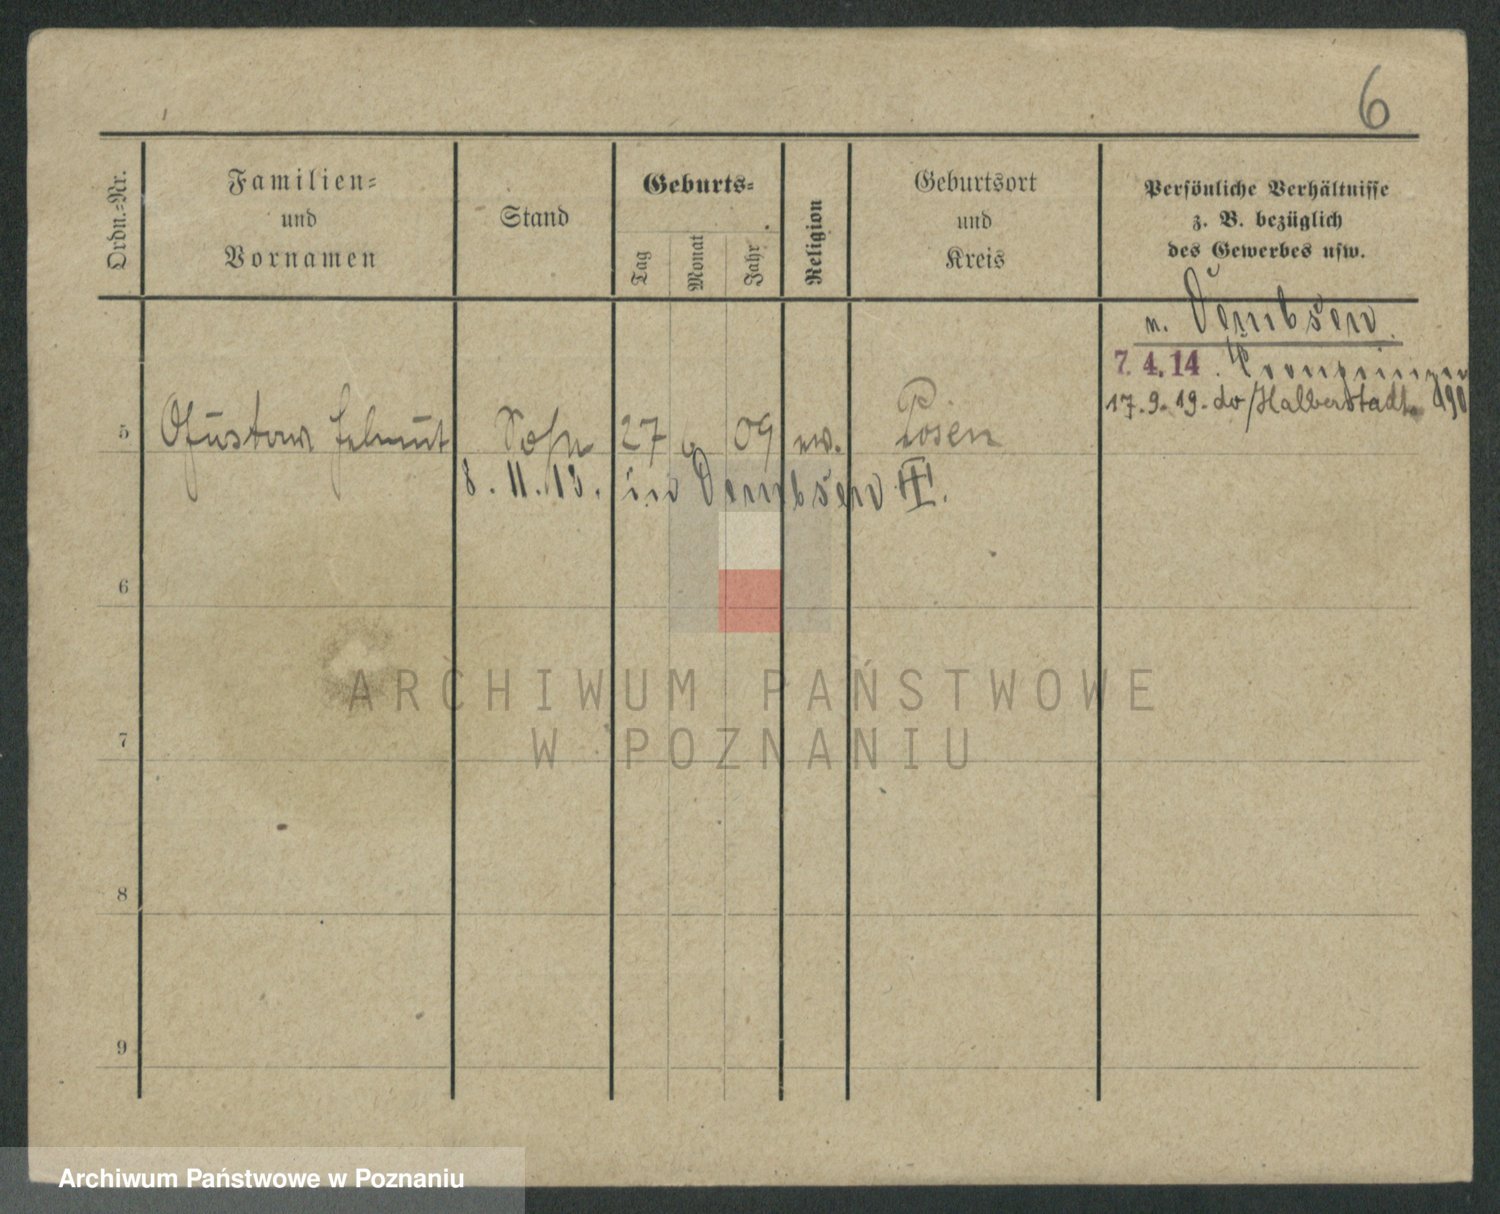 6
Ordn.-Nr.
Familien-
und
Vornamen
Stand
Geburts-
Tag
Monat
Jahr
Religion
Geburtsort
und
Kreis
Persönliche Verhältnisse
z. B. bezüglich
des Gewerbes usw.
n. Dembsen
7. 4. 14.
17. 9. 19. do/Halberstadt
5 Gustaw Helmut Sohn 27 6 09 ew. Posen
8. 11. 13. in Dembsen III.
6
7
8
9
ARCHIWUM PAŃSTWOWE
W POZNANIU
Archiwum Państwowe w Poznaniu